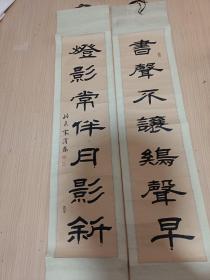 書聲不讓鷄聲早
燈影常伴月影斜